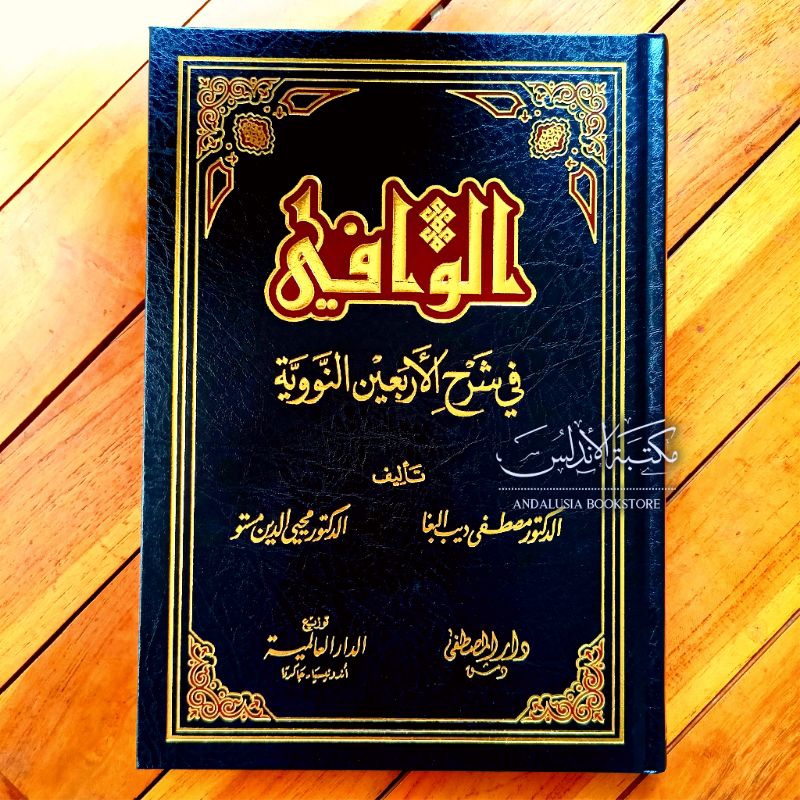 الوافي
في شَرْح الأَرْبَعِيْن النَّوَوِيَّة
مكتبة الأندلس
ANDALUSIA BOOKSTORE
تَأليف
الدكتور مصطفى ديب البغا
الدكتور محيي الدين مستو
دار المصطفى
دمشق
توزيع
الدار العالمية
أندونيسيا - جاكرتا